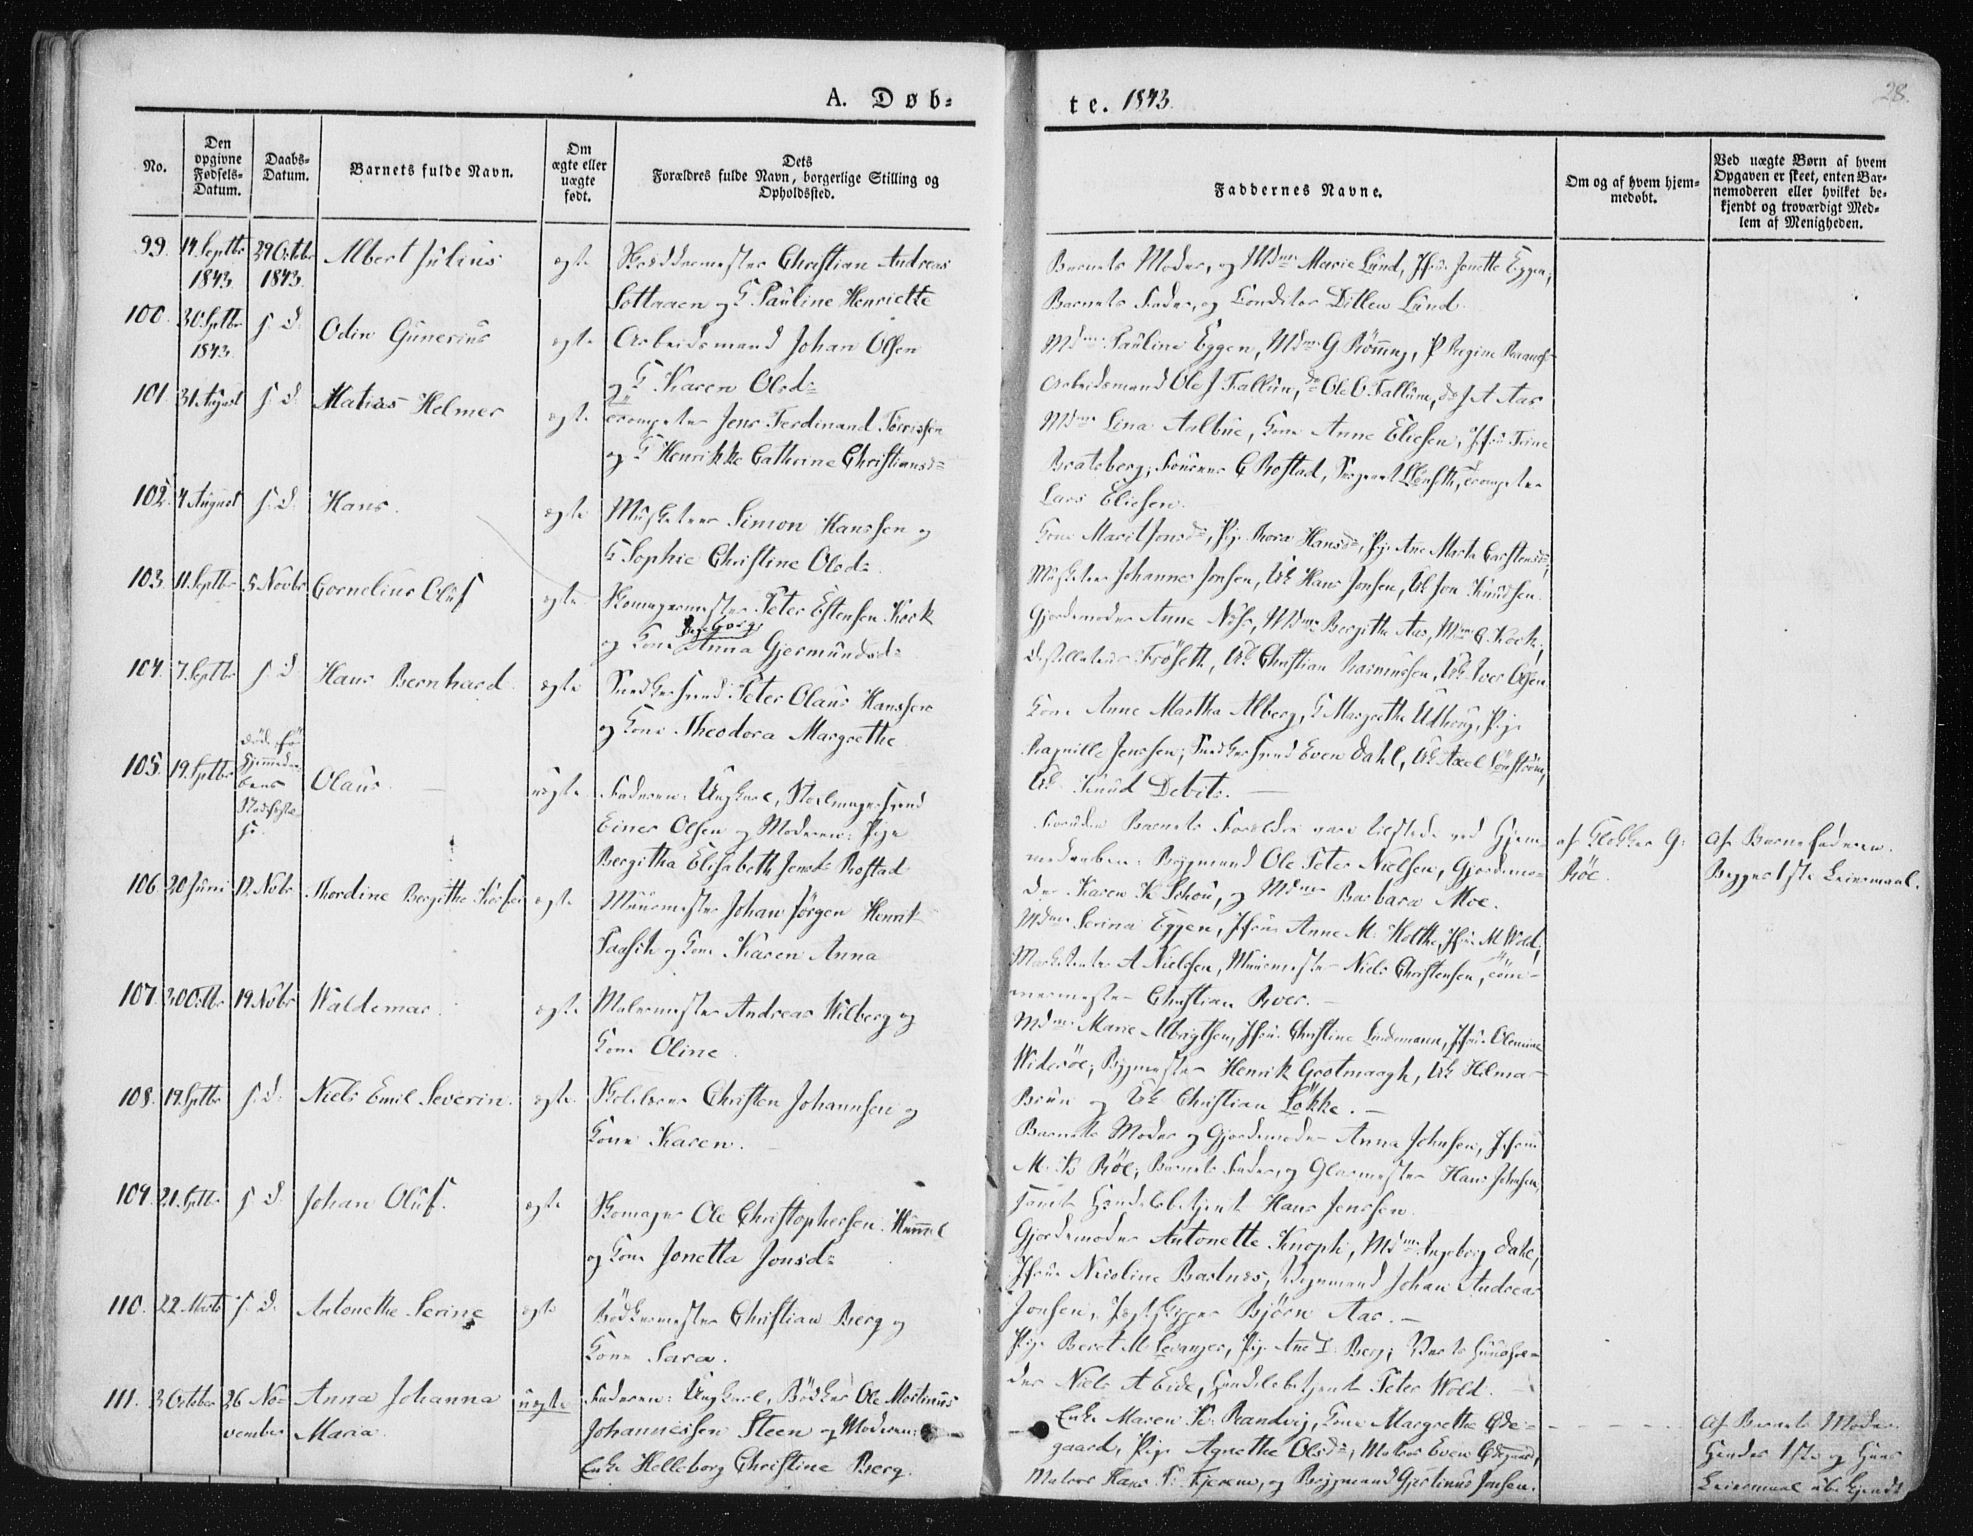 A. Døb=
te. 1843.
28.
No.
Den opgivne Fødsels=Datum.
Daabs=Datum.
Barnets fulde Navn.
Om ægte eller uægte født.
Dets Forældres fulde Navn, borgerlige Stilling og Opholdssted.
Faddernes Navne.
Om og af hvem hjem=medøbt.
Ved uægte Børn af hvem Opgaven er skeet, enten Bar=nemoderen eller hvilket be=kjendt og troværdigt Med=lem af Menigheden.
99. 14. Septbr 1843. 29 Octbr 1843. Albert Julius ægte Skræddermester Christian Andreas
og G. Pauline Henriette
Barnets Moder, og Mdme Marie Lund, Jfru Jonette Eggen,
Barnets Fader, og Conditor Ditlew Lund.
100. 30. Septbr 1843. s. d. Odin Gunerius ægte Arbeidsmand Johan Olsen
og G. Karen Olsd=
Mdme Pauline Eggen, Mdme G Rømmy, P Regine
Arbeidsmand Ole J Fallün, do Ole O. Fallüm, do J A Aas
101. 31 August s. d. Matias Helmer ægte Trompeter Jens Ferdinand
og G Henrikke Cathrine Christiansd=
Mdme Lina Aalbue, Kone Anne Eliesen, Jfru Trine
Bratsberg, Fourer C Rostad, Sergeant Trompeter
Lars Eliesen.
102. 4 August s. d. Hans. ægte Musketeer Simon Hanssen og
G Sophie Christine Olsd=
Kone Marit Jonsd=, Pige Thora Hansd=, Pige Ane Marta Carstensd=,
Musketeer Johannes Jonsen, Uk Hans Jonsen, Uk Jon Knudsen.
103. 11. Septbr 5 Novbr Cornelius Oluf ægte Skomagermester Peter Estensen Kork
og Kone Ingeborg Anna Gjermundsd=
Gjordemoder Anne Næss, Mdme Bergitha Aas, Mdme C. Kork,
Destillateur Frøseth, Uk Christian Rasmussen, Uk Iver Olsen
104. 7. Septbr s. d. Hans Bernhard ægte Snedkersvend Peter Olaus Hanssen
og Kone Theodora Margrethe
Kone Anne Martha Alberg, G Margrethe Udhoug, Pige
Ragnille Jenssen, Snedkersvend Even Dahl, Uk Axel Lønstrøm,
Uk Knud Debits.
105. 19. Septbr Olaus uægte Faderen: Ungkarl, Stolmagersvend
Einer Olsen og Moderen: Pige
Bergitha Elisabeth Jensd= Rostad
Foruden Barnets Forældre vare tilstede ved Hjem=
medaaben: Bygmand Ole Peter Nielsen, Gjordemo=
der Karen K Schou, og Mdme Barbara Moe.
af Klokker G: Röe.
Af Barnefaderen.
Begges 1ste Leiermaal.
106 20 Juni 12. Novbr Thordine Bergitha ægte Muurmester Johan Jørgen Henrik
og Kone Karen Anna
Mdme Serina Eggen, Jfru Anne M. Holthe, Jfru M Wold,
Marketenter A Nielsen, Muurmester Niels Christensen, Töm=
mermester Christian Roer.
107. 30 Octbr 19. Novbr Waldemar. ægte Malermester Andreas Wilberg og
Kone Oline.
Mdme Marie Albrigtsen, Jfru Christine Lindemann, Jfru Olemine
Wideröe, Bygmester Henrik Grotmaagh, Uk Hilmar
Brün og Uk Christian Løkke.
108. 19. Septbr s. d. Niels Emil Severin. ægte Christen Johannsen og
Kone Karen.
Barnets Moder og Gjordemoder Anna Johnsen, Jfru
M. B Röe, Barnets Fader, og Glasmester Hans Johnsen,
samt Handelsbetjent Hans Jenssen.
109. 21. Septbr s. d. Johan Oluf. ægte Skomager Ole Christophersen Hummel
og Kone Jonetta Jonsd=
Gjordemoder Antonette Knoph, Mdme Ingeborg Dahl,
Jfru Nicoline Bastnes, Johan Andreas
Jonsen, Bjørn Aas.
110. 22. Marts s. d. Antonethe Serine ægte Bødkermester Christian Berg og
Kone Sara.
Pige Beret M Levanger, Pige Ane I. Berg,
der Niels A Eide, Handelsbetjent Peter Wold.
111. 3 October 26 No=vember Anna Johanna Maria. uægte Faderen: Ungkarl, Bødker Ole Martinus
Johannessen Steen og Moderen:
Enke Helleborg Christine Berg.
Enke Maren Fr: Randvig, Kone Margrethe Øde=
gaard, Pige Agnethe Olsd=, Matros Even Ødegaard,
Matros Hans og Bygmand Gjertinus Jonsen.
Af Barnets Moder.
Hendes 1ste og Hans
Leiermaal ubekjendt